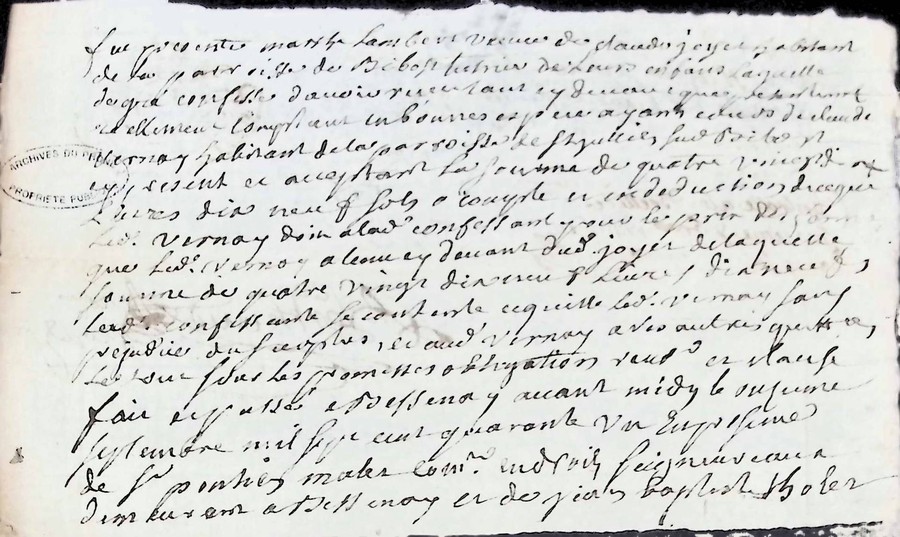 fut presente marthe Lambert veuve de claude joyet habitant
de la parroisse de Bibost tutrice de Leurs enfans Laquelle
de gré confesse d'avoir receu tant cy devant que presentement
reellement comptant en bonnes especes ayant cours de claude
Vernay habitant de la parroisse de St Jullien sur Bibost
ARCHIVES DU
PROPRIETE PUBL
cy present et acceptant La somme de quatre vingt dix
Livres dix neuf sols a compte et en deduction de ce que
Led. Vernay doit a lad. confessant pour le prix des
que Led. Vernay a eu cy devant dud. joyet de laquelle
somme de quatre vingt dix neuf Livres dix neuf s
Lad. confessante se contente et quitte led. Vernay sans
prejudice du surplus, et aud. Vernay a ses autres quittances,
Le tout sous les promesses obligation renon. et clause
fait et passé a Bessenay avant midy le onzieme
septembre mil sept cent quarante un En presence
de Sr. malet Com.re en droits seigneuriaux
demeurant a Bessenay et de jean baptiste tholet